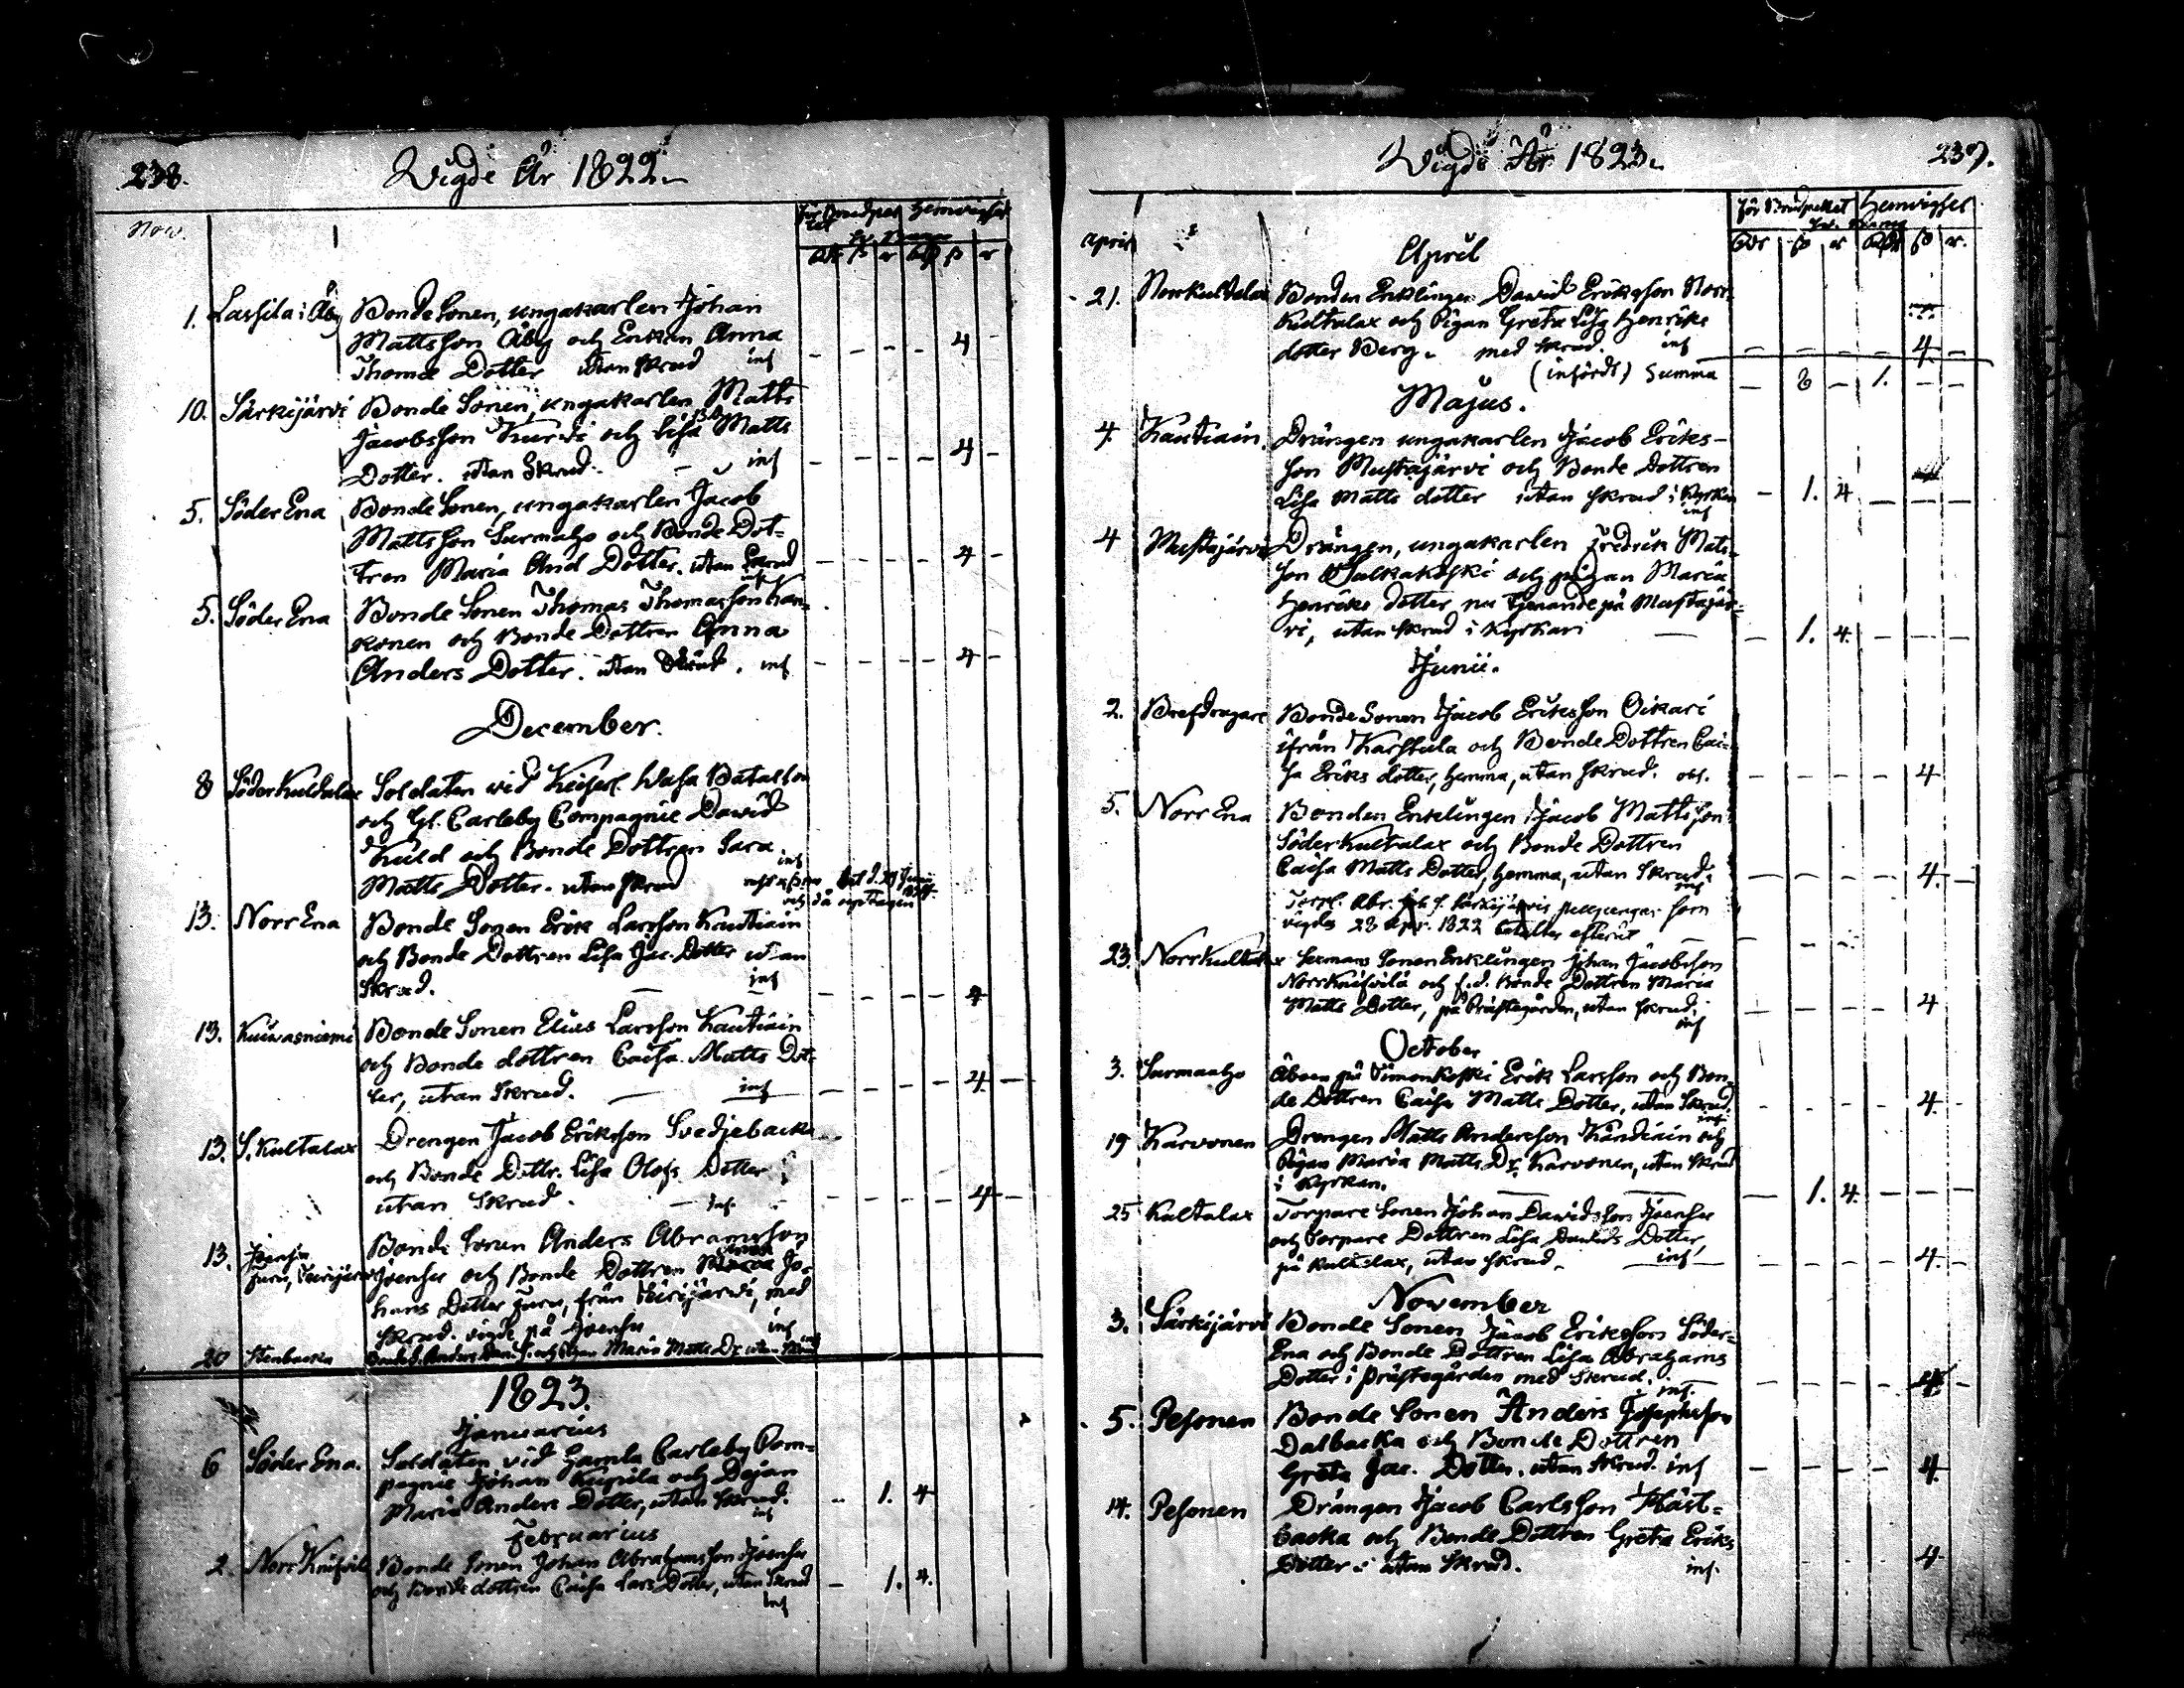 238. Wigde År 1822.
Nov.
1. Lassila i Åby Bonde Sonen, ungakarlen Johan
Mattsson Åby och Enkan Anna
Thomæ Dotter utan skrud inf 4
10. Särkijärvi Bonde Sonen, ungakarlen Matts
Jacobsson Kurvi och Lisa Matts
Dotter. utan Skrud. inf 4
5. Söder Ena Bonde Sonen, ungakarlen Jacob
Mattsson Surmaho och Bonde Dot-
tren Maria And Dotter. utan Skrud inf 4
5. Söder Ena Bonde Sonen Thomas Thomasson
konen och Bonde Dottren Anna
Anders Dotter. utan Skrud. inf 4
December.
8 Söder Kultalax Soldaten vid Keiserl. Wasa Batalion
och Gl. Carleby Compagnie David
Kuld och Bonde Dottren Sara
Matts Dotter. utan skrud inf
och då upptagen
13. Norr Ena Bonde Sonen Erik Larsson Kautiain
och Bonde Dottren Lisa Jac. Dotter utan
Skrud. inf 4
13. Kuivasniemi Bonde Sonen Elias Larsson Kautiain
och Bonde dottren Caisa Matts Dot-
ter, utan Skrud. inf 4
13. S. Kultalax Drengen Jacob Eriksson Svedjebacka
och Bonde Dottr. Lisa Olofs Dotter
utan Skrud. inf. 4
13. Joensu Bonde Sonen Anders Abramsson
Joensu och Bonde Dottren Jo-
hans Dotter Juru, från Perijärvi, med
skrud. vigde på Joensu inf
20 Stenbacka Maria Matts Dr utan Skrud
1823.
Januarius
6 Söder Ena. Soldaten vid Gamla Carleby Com-
pagnie Johan Kupila och Pigan
Maria Anders Dotter, utan Skrud. inf 1. 4
Februarius
2. Norr Knifvilä Bonde Sonen Johan Abrahamsson Joensu
och Bonde dottren Caisa Lars Dotter, utan Skrud inf 1. 4.
Wigde År 1823. 239.
För Brudpellet Hemvigsel
April
April
21. Norr Kultalax Bonden Enklingen David Eriksson Norr
Kultalax och Pigan Greta Lisa Henriks
dotter Berg. med skrud. inf 4
(införde) Summa 8 1.
Majus.
4. Kautiain. Drängen ungakarlen Jacob Eriks-
son Mustajärvi och Bonde Dottren
Lisa Matts dotter utan skrud i Kyrkan inf 1. 4
4 Mustajärvi Drängen, ungakarlen Fredrik Mats-
son Salkakoski och pigan Maria
Henriks dotter nu tjenande på Mustajär-
vi, utan skrud i Kyrkan 1. 4.
Junii.
2. Brefdragare Bonde Sonen Jacob Eriksson Oikari
ifrån Karstula och Bonde Dottren Cai-
sa Eriks dotter, hemma, utan skrud. 4
5. Norr Ena Bonden Enklingen Jacob Mattsson
Söder Kultalax och Bonde Dottren
Caisa Matts Dotter, hemma, utan Skrud. inf 4.
vigdes 28 Apr. 1822 betaltes efteråt
23. Norr Kultalax Sonen Enklingen Johan Jacobsson
Norr Knifvilä och f.d. Bonde Dottren Maria
Matts Dotter, på Prästegården, utan skrud. inf 4
October
3. Surmaaho Åboen på Timonkoski Erik Larsson och Bon-
de Dottren Caisa Matts Dotter, utan Skrud. inf 4.
19 Karvonen Drengen Matts Andersson Kandiain och
Pigan Maria Matts Dr. Karvonen, utan skrud
i Kyrkan. 1. 4.
25 Kultalax Torpare Sonen Johan Davidsson Joensu
och Torpare Dottren Lisa Davids Dotter,
på Kultalax, utan skrud. inf 4.
November
3. Särkijärvi Bonde Sonen Jacob Eriksson Söder-
Ena och Bonde Dottren Lisa Abrahams
Dotter i Prästegården med Skrud. inf. 4
5. Pesonen Bonde Sonen Anders Josephsson
Dalbacka och Bonde Dottren
Greta Jac. Dotter. utan Skrud. inf 4.
14. Pesonen Drängen Jacob Carlsson Häst-
backa och Bonde Dottren Greta Eriks
Dotter utan Skrud. inf. 4